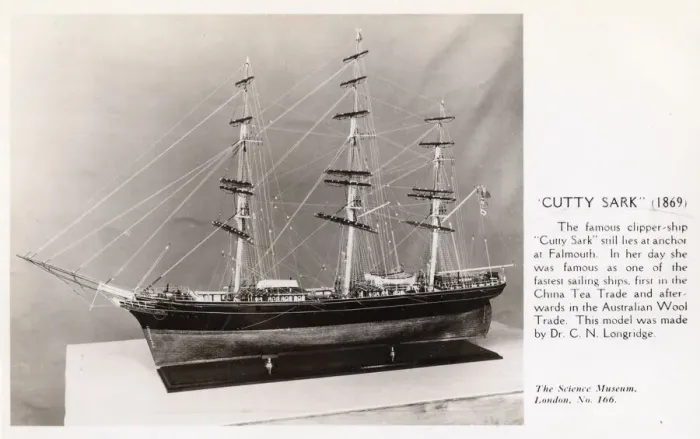 "CUTTY SARK" (1869)
The famous clipper-ship
"Cutty Sark" still lies at anchor
at Falmouth. In her day she
was famous as one of the
fastest sailing ships, first in the
China Tea Trade and after-
wards in the Australian Wool
Trade. This model was made
by Dr. C. N. Longridge.
The Science Museum,
London, No. 166.